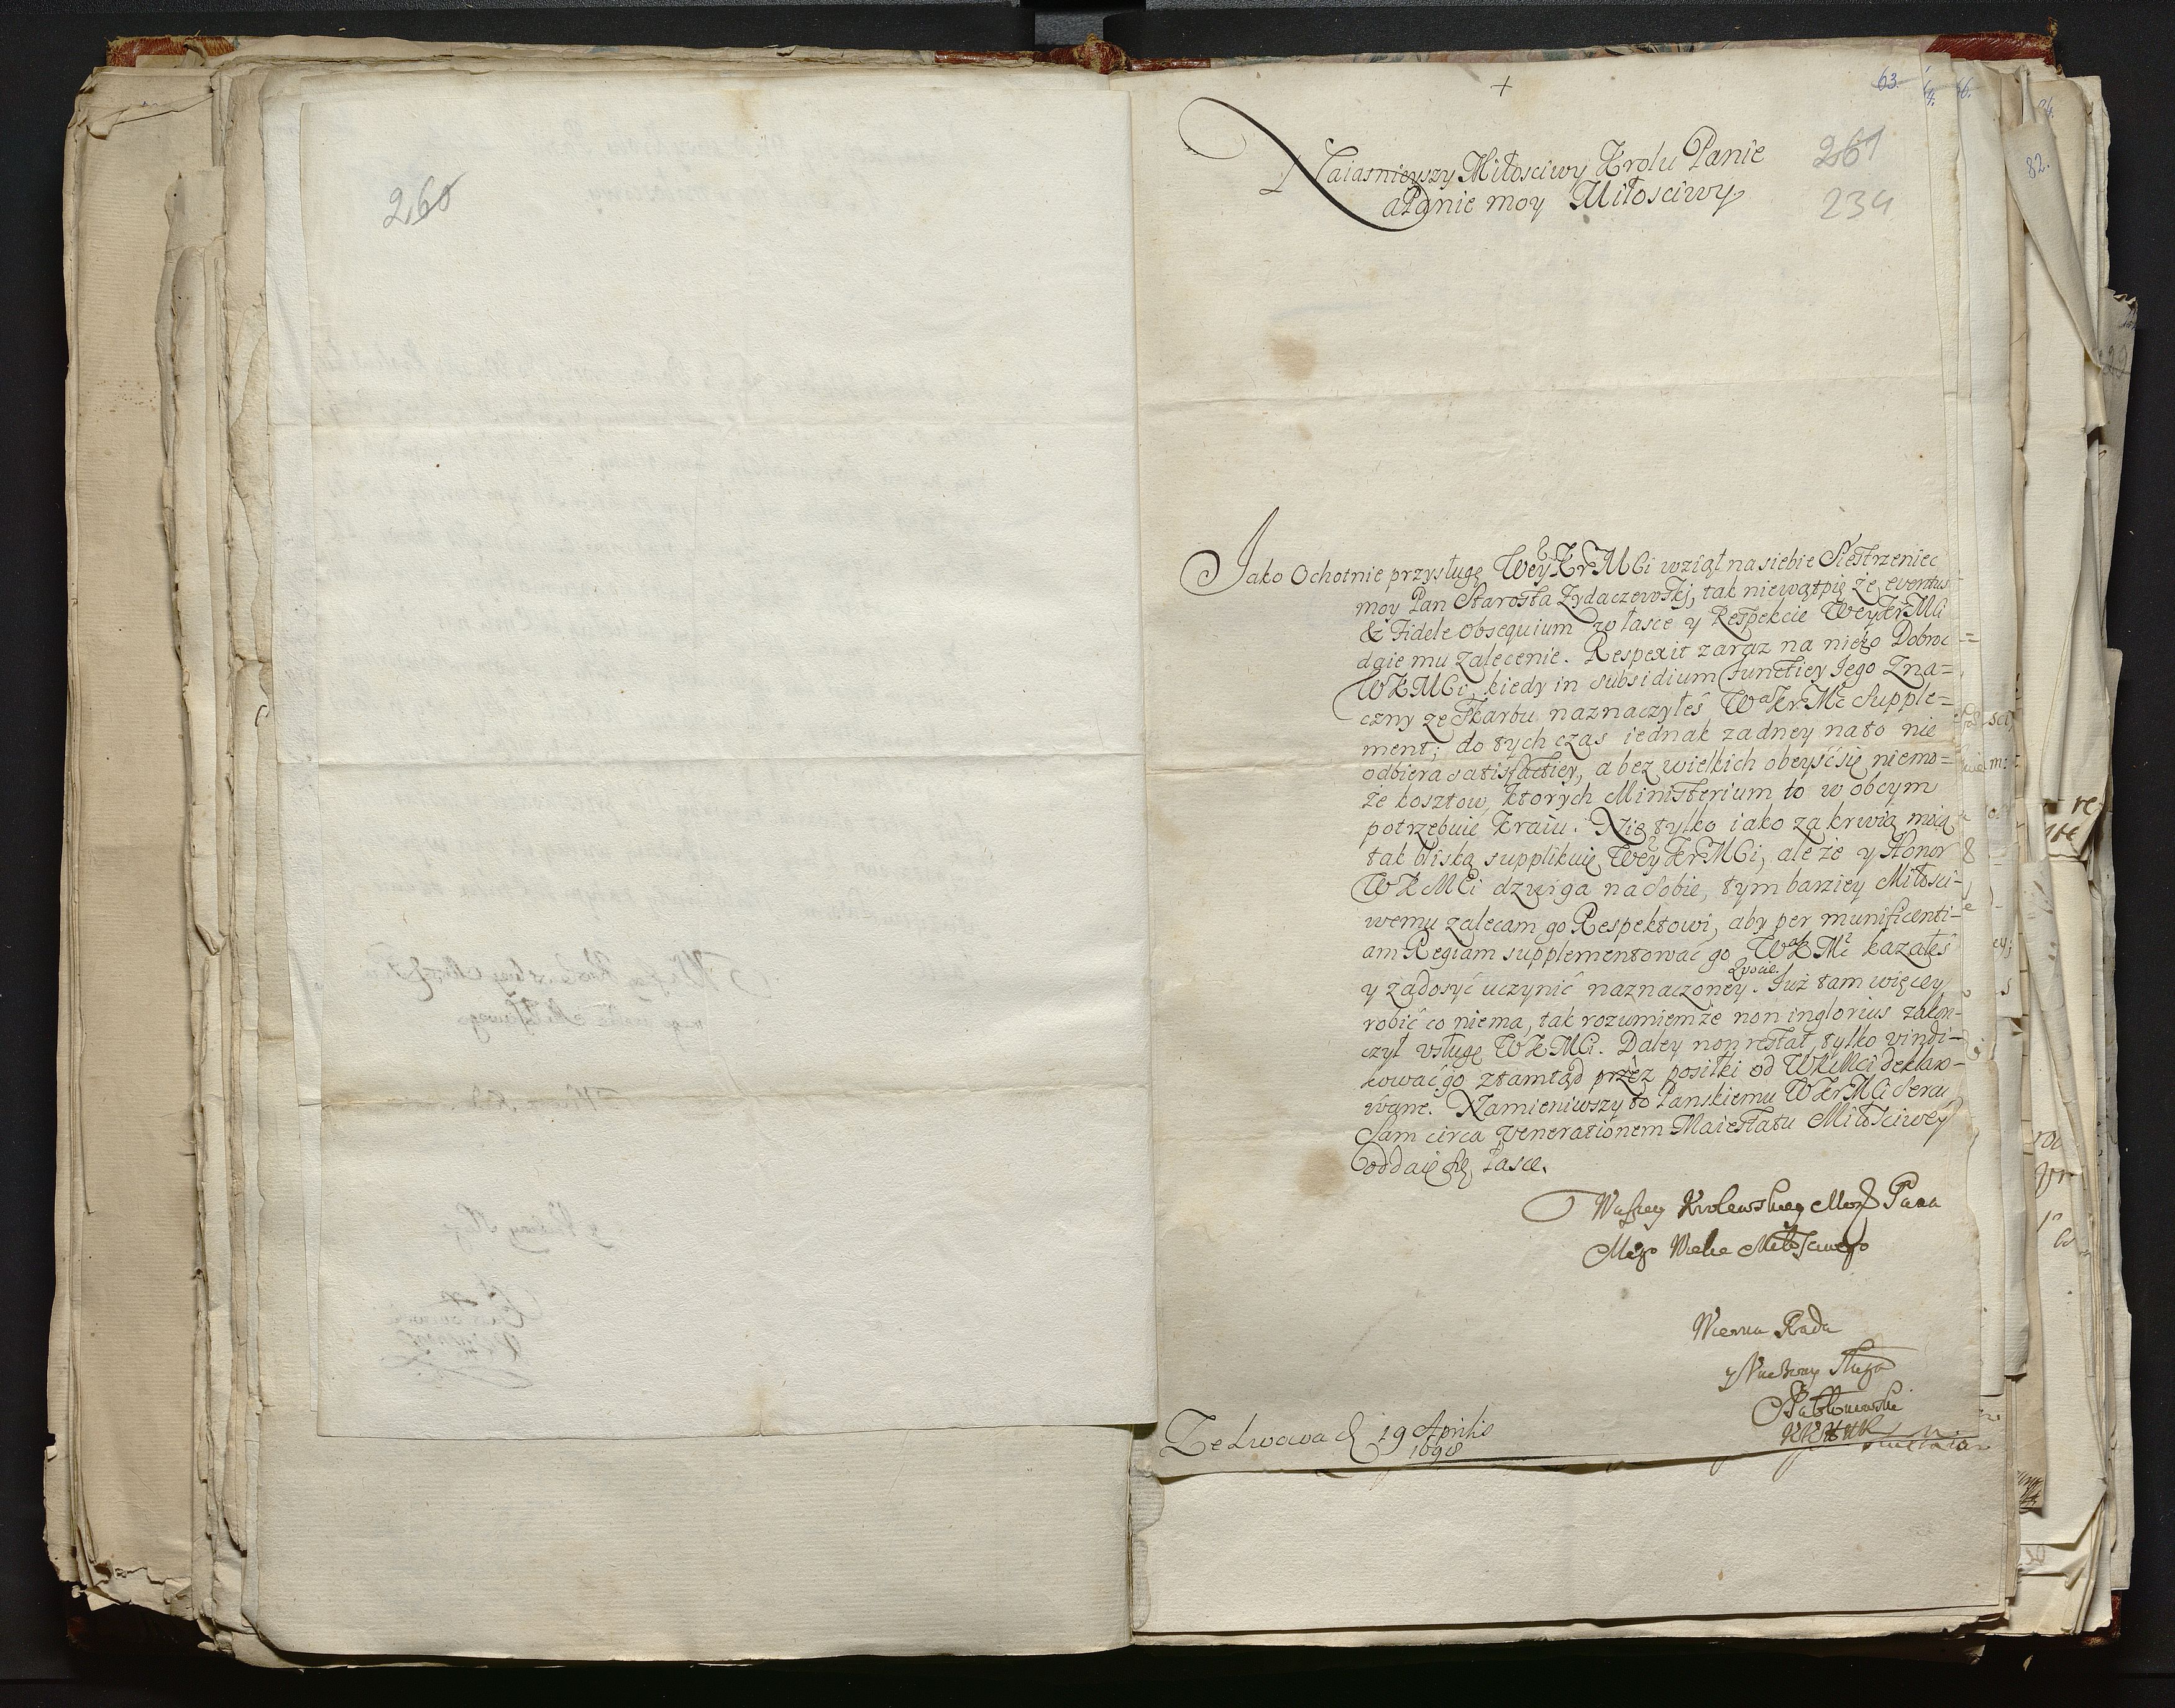 260
+
63.
Naiasnieyszy Miłosciwy Krolu Panie
a Panie moy Miłosciwy
261
234
82.
Iako Ochotnie przysługę WeyKrMCi wziął na siebie Siestrzeniec
moy Pan Starosta Zydaczewskj, tak niewątpię że eventus
& Fidele obsequium w łasce y Respekcie WeyKrMCi
daie mu zalecenie. Respexit zaraz na niego Dobroc
WKMCi, kiedy in subsidium functiey Iego Zna=
czny ze Skarbu naznaczyłeś WaKrMc Supple=
ment; do tych czas iednak zadney na to nie
odbiera satisfactiey, a bez wielkich obeyść się niemo=
że kosztow, ktorych Ministerium to w obcym
potrzebuie Kraiu. Nie tylko iako za krwią moią
tak bliską supplikuię WeyKrMCi, ale że y Honor
WKMCi dzwiga na sobie, tym barziey Miłosci-
wemu zalecam go Respektowi, aby per munificenti-
am Regiam supplementować go WaKMc kazałeś
y zadosyć uczynić naznaczoney. Już tam więcey
robić co niema, tak rozumiem że non inglorius zakon-
czył usługę WKMCi. Daley non restat, tylko vindi-
kować go ztamtąd przez posiłki od WKMci deklaro-
wane. Namieniwszy to Panskiemu WKrMCi Sercu
Sam circa venerationem Maiestatu Miłosciwey
oddaię się łasce.
Waszey Krolewskiey Mosci Pana
Mego Wielce Miłosciwego
Wierna Rada
y Sługa
Jabłonowski
KKHWK
Ze Lwowa d 19 Aprilis
1698